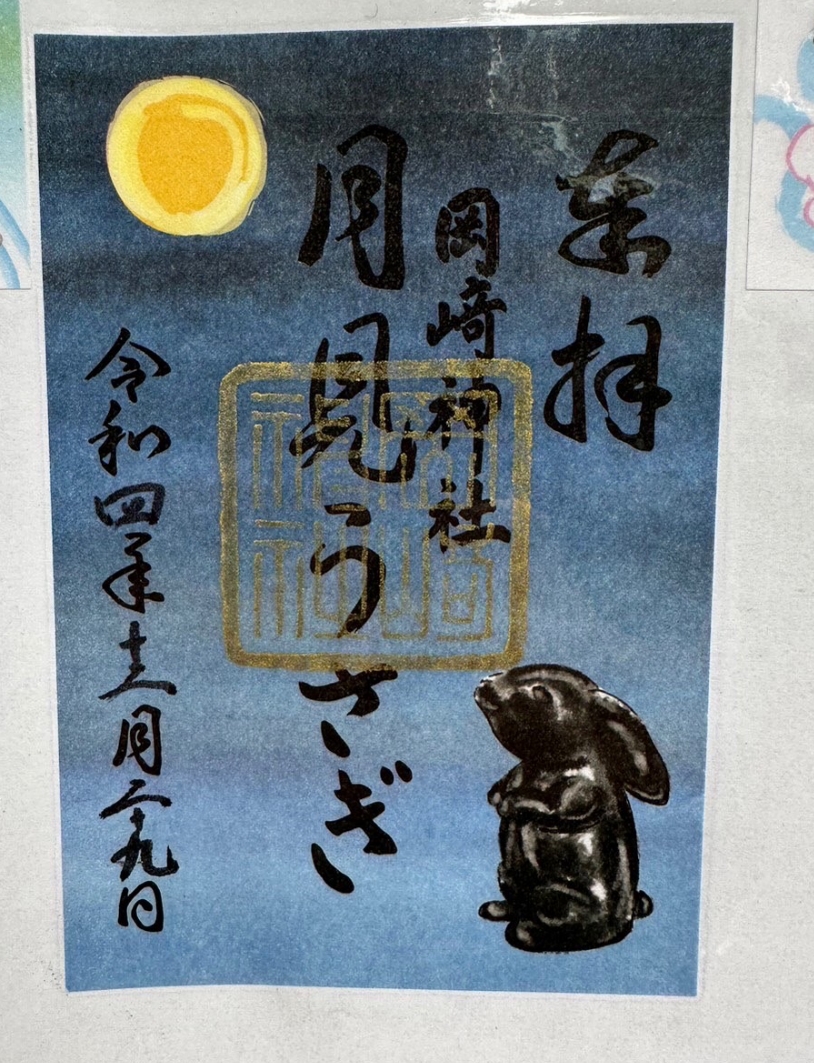 奉拝
岡崎神社
月見うさぎ
令和四年十二月二十九日
岡崎
神社